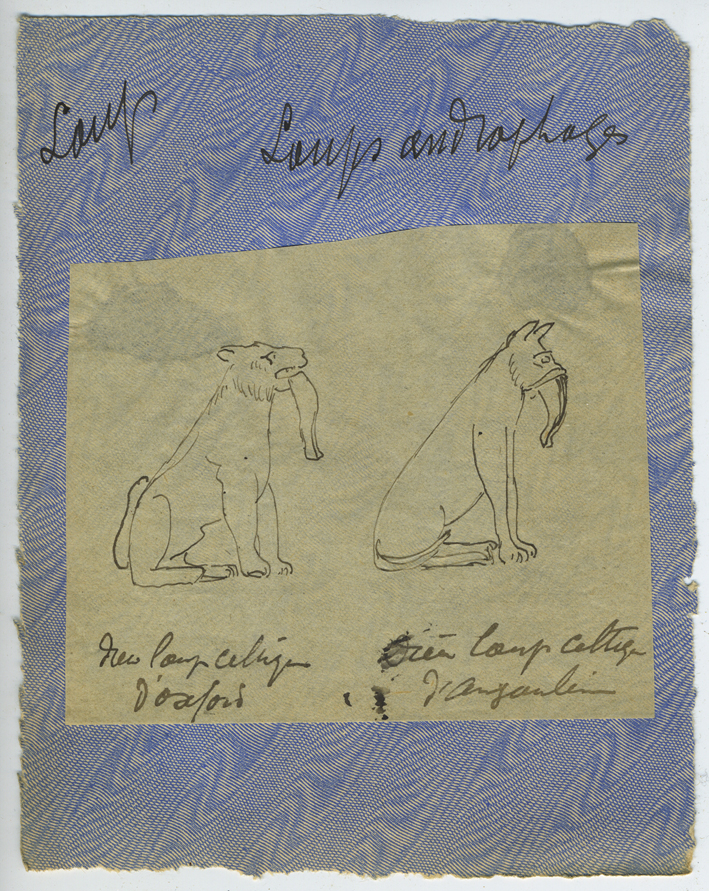 Loup
Loups androphages
Dieu loup celtique
d'oxford
Dieu loup celtique
d'angoulème